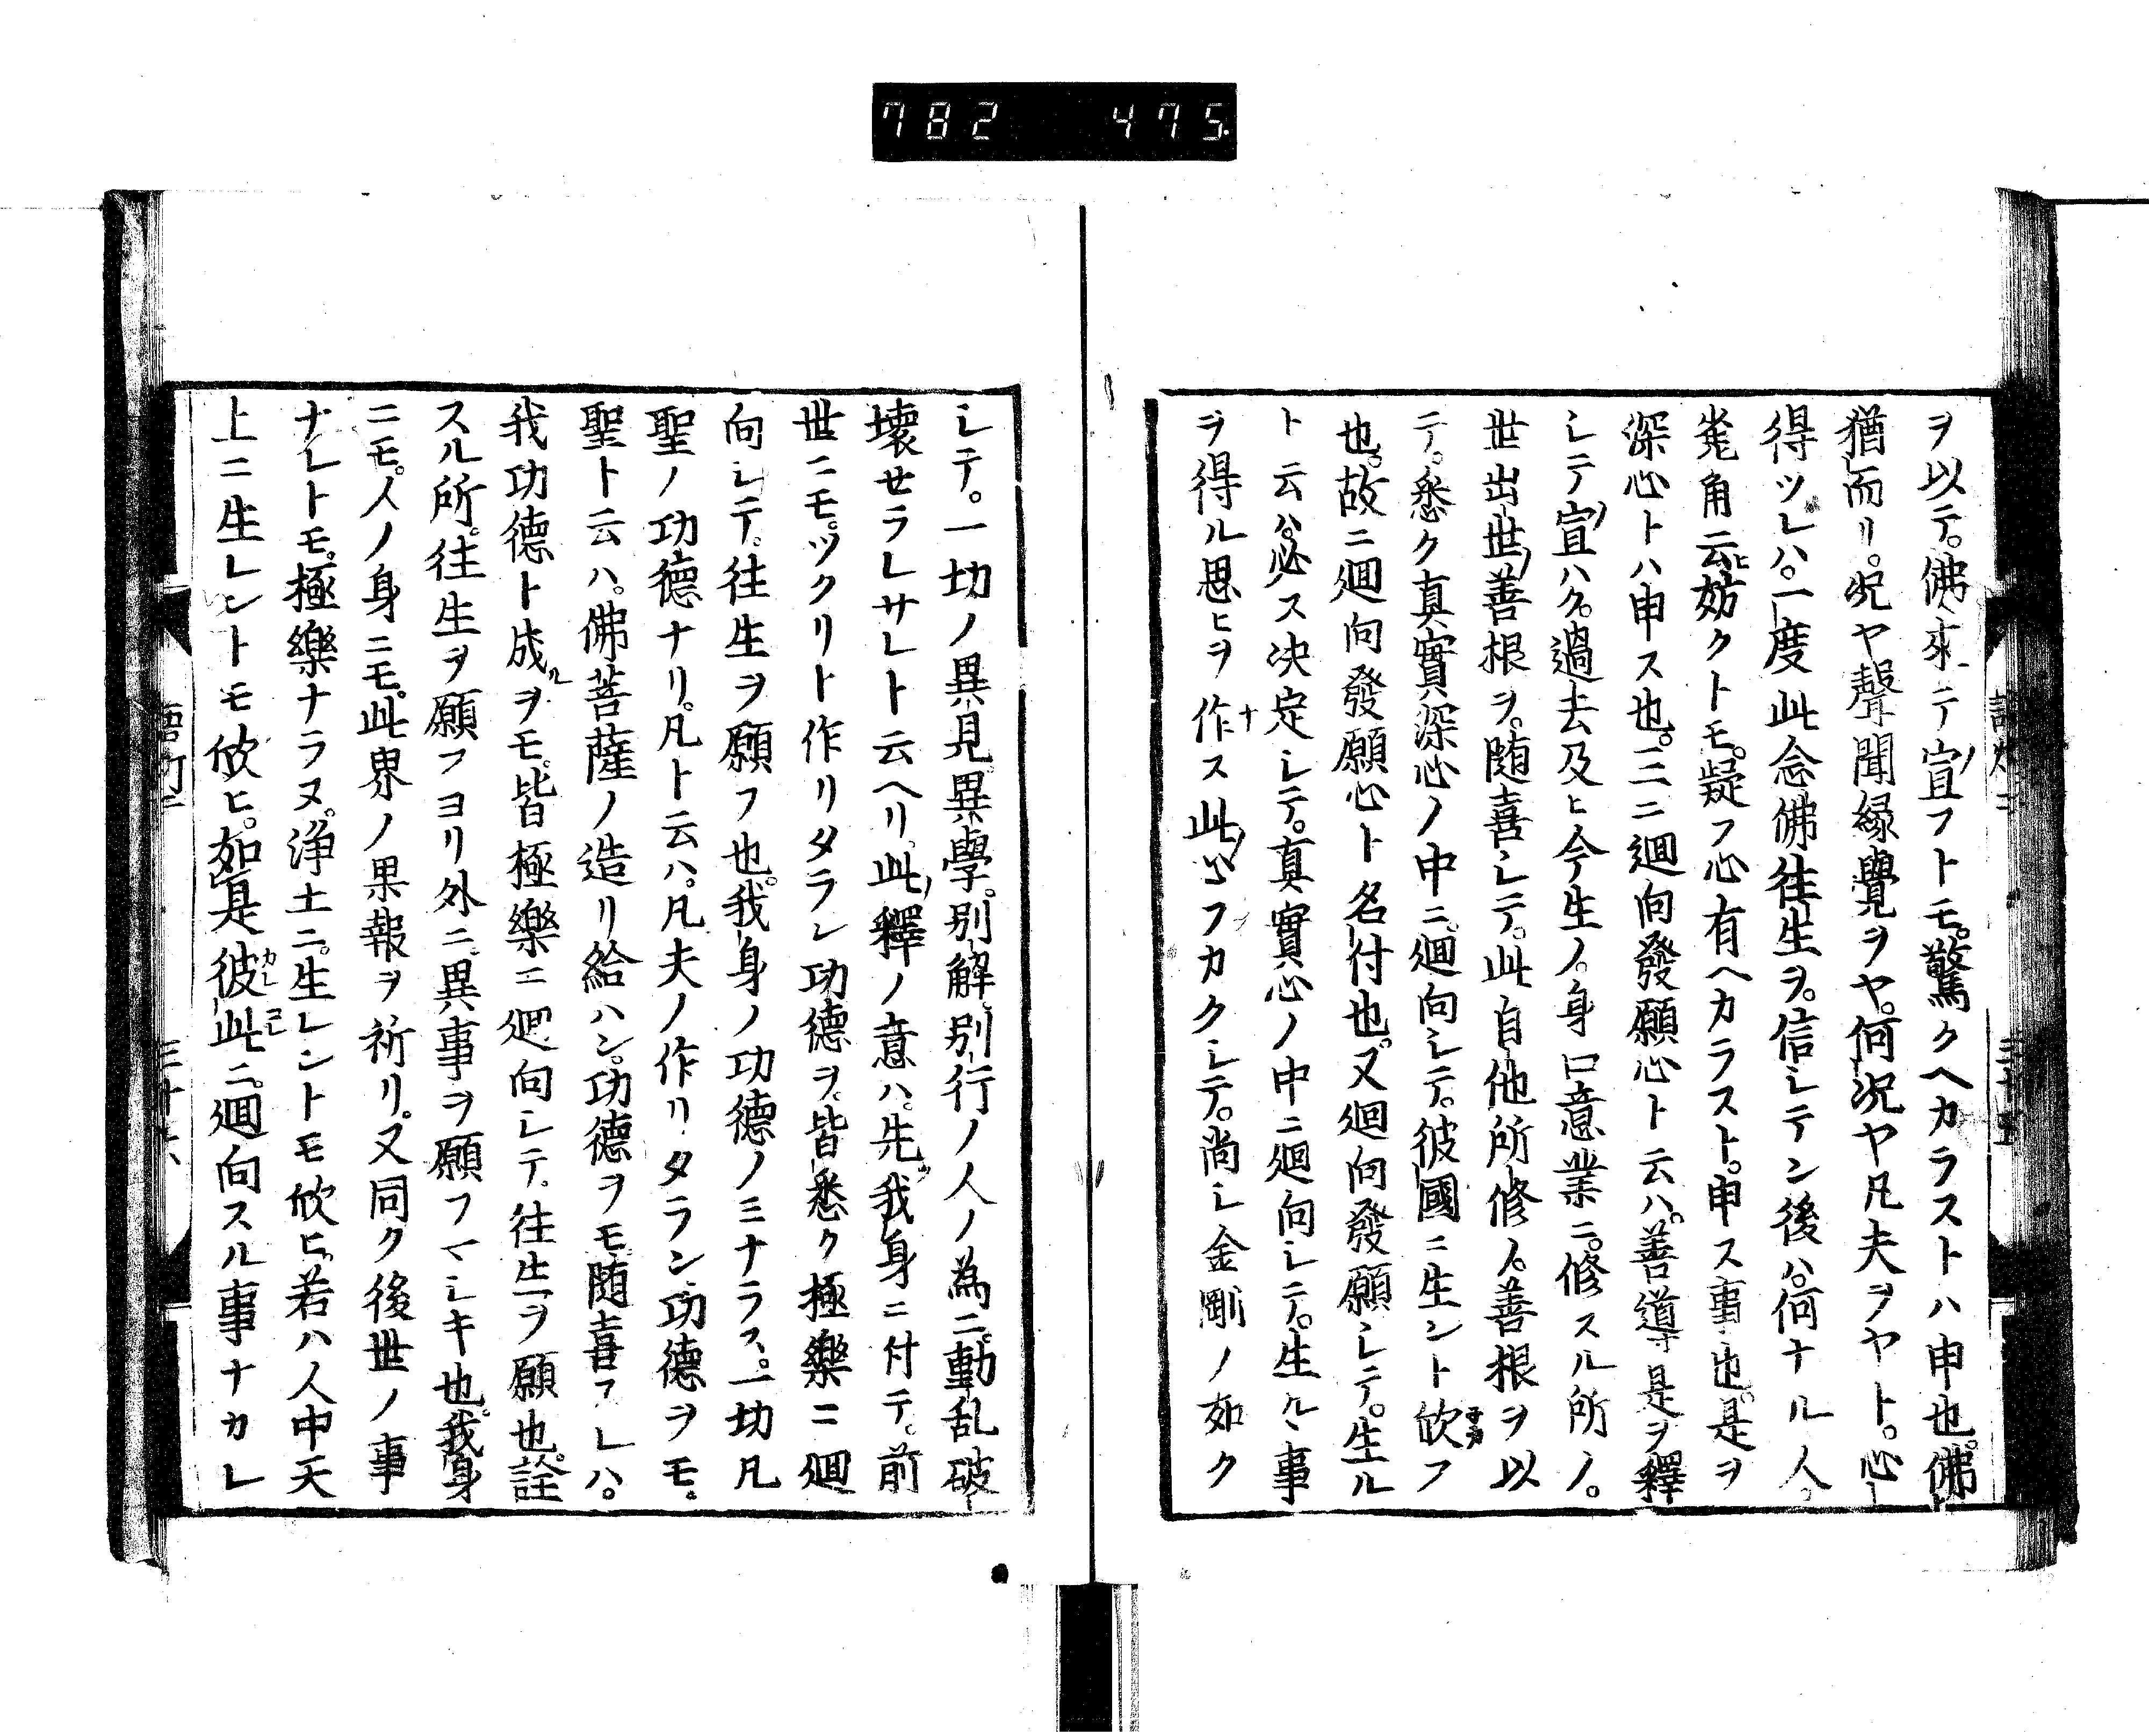 782 475
ヲ以テ。佛來テ宣フトモ。驚クヘカラストハ申也。佛
猶而リ。况ヤ聲聞縁覺ヲヤ。何况ヤ凡夫ヲヤト。心
得ツレハ。一度此念佛往生ヲ。信シテン後ハ。何ナル人。
兎角云ヒ妨クトモ。疑フ心有ヘカラスト。申ス事也。是ヲ
深心トハ申ス也。三ニ廻向發願心ト云ハ。善導是ヲ釋
シテ宣ハク。過去及ヒ今生ノ。身口意業ニ。修スル所ノ。
世出世ノ善根ヲ。随喜シテ。此自他所修ノ。善根ヲ以
テ。悉ク真實深心ノ中ニ。廻向シテ。彼國ニ生ント欣フ
也。故ニ廻向發願心ト名付也。又廻向發願シテ。生ル
ト云ハ。必ス决定シテ。真實心ノ中ニ廻向シテ。生ルヽ事
ヲ得ル思ヒヲ作ス此心フカクシテ。尚シ金剛ノ如ク
三十五
シテ。一切ノ異見異學。別解別行ノ人ノ為ニ。動乱破
壞セラレサレト云ヘリ。此釋ノ意ハ。先我身ニ付テ。前
世ニモ。ツクリト作リタラレ功德ヲ。皆悉ク極樂ニ廻
向シテ。往生ヲ願フ也。我身ノ功德ノミナラス。一切凡
聖ノ功德ナリ。凡ト云ハ。凡夫ノ作リタラン功德ヲモ。
聖ト云ハ。佛菩薩ノ造リ給ハン。功德ヲモ随喜スレハ。
我功德ト成ルヲモ。皆極樂ニ廻向シテ。往生ヲ願也。詮
スル所。往生ヲ願フヨリ外ニ。異事ヲ願フマシキ也。我身
ニモ。人ノ身ニモ。此界ノ果報ヲ祈リ。又同ク後世ノ事
ナレトモ。極樂ナラヌ。淨土ニ。生レントモ欣ヒ。若ハ人中天
上ニ生レントモ欣ヒ。如是彼此ニ。廻向スル事ナカレ